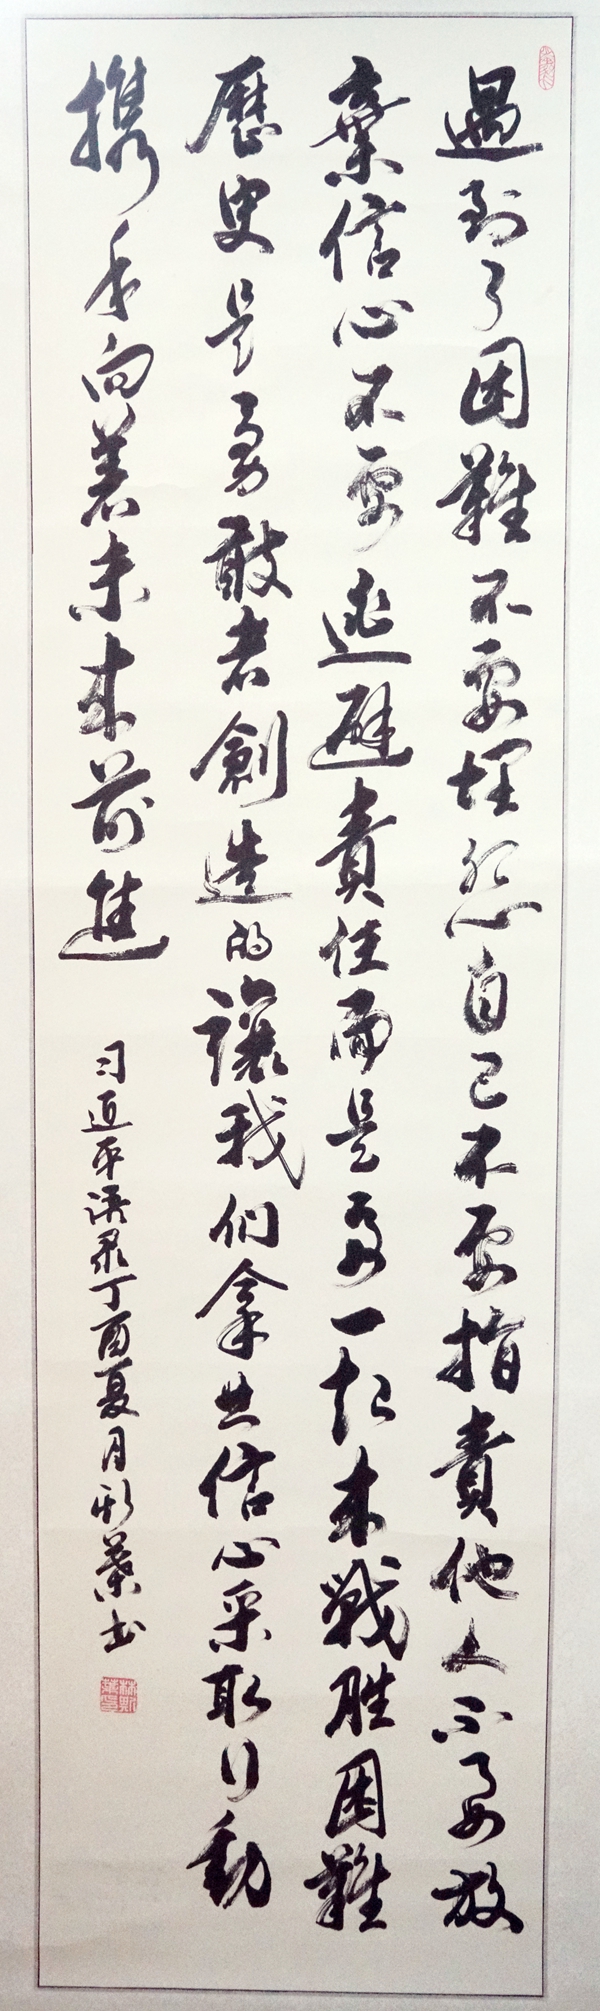 遇到了困難不要埋怨自己不要指責他人不要放
棄信心不要逃避責任而是要一起來戰胜困難
歷史是勇敢者創造的讓我们拿出信心采取行動
携手向着未来前進
习近平语录丁酉夏月新葉书